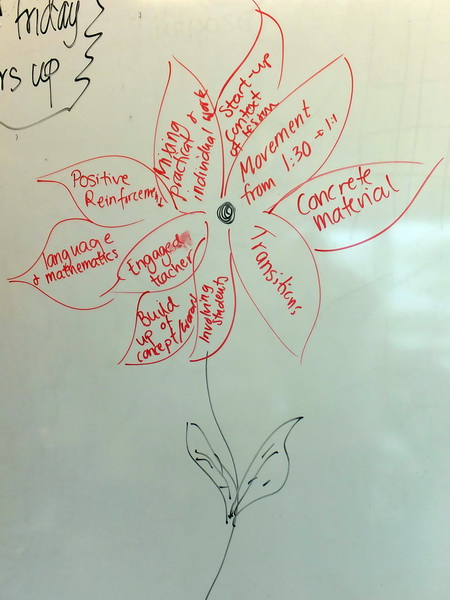 friday
rs up
Start-up
context
of lesson
Mixing
practical &
individual work
Movement
from 1:30 → 1:1
Positive
Reinforcement
Concrete
material
language
& mathematics
Engaged
teacher
Transitions
Build
up of
concept/words
Involving
students